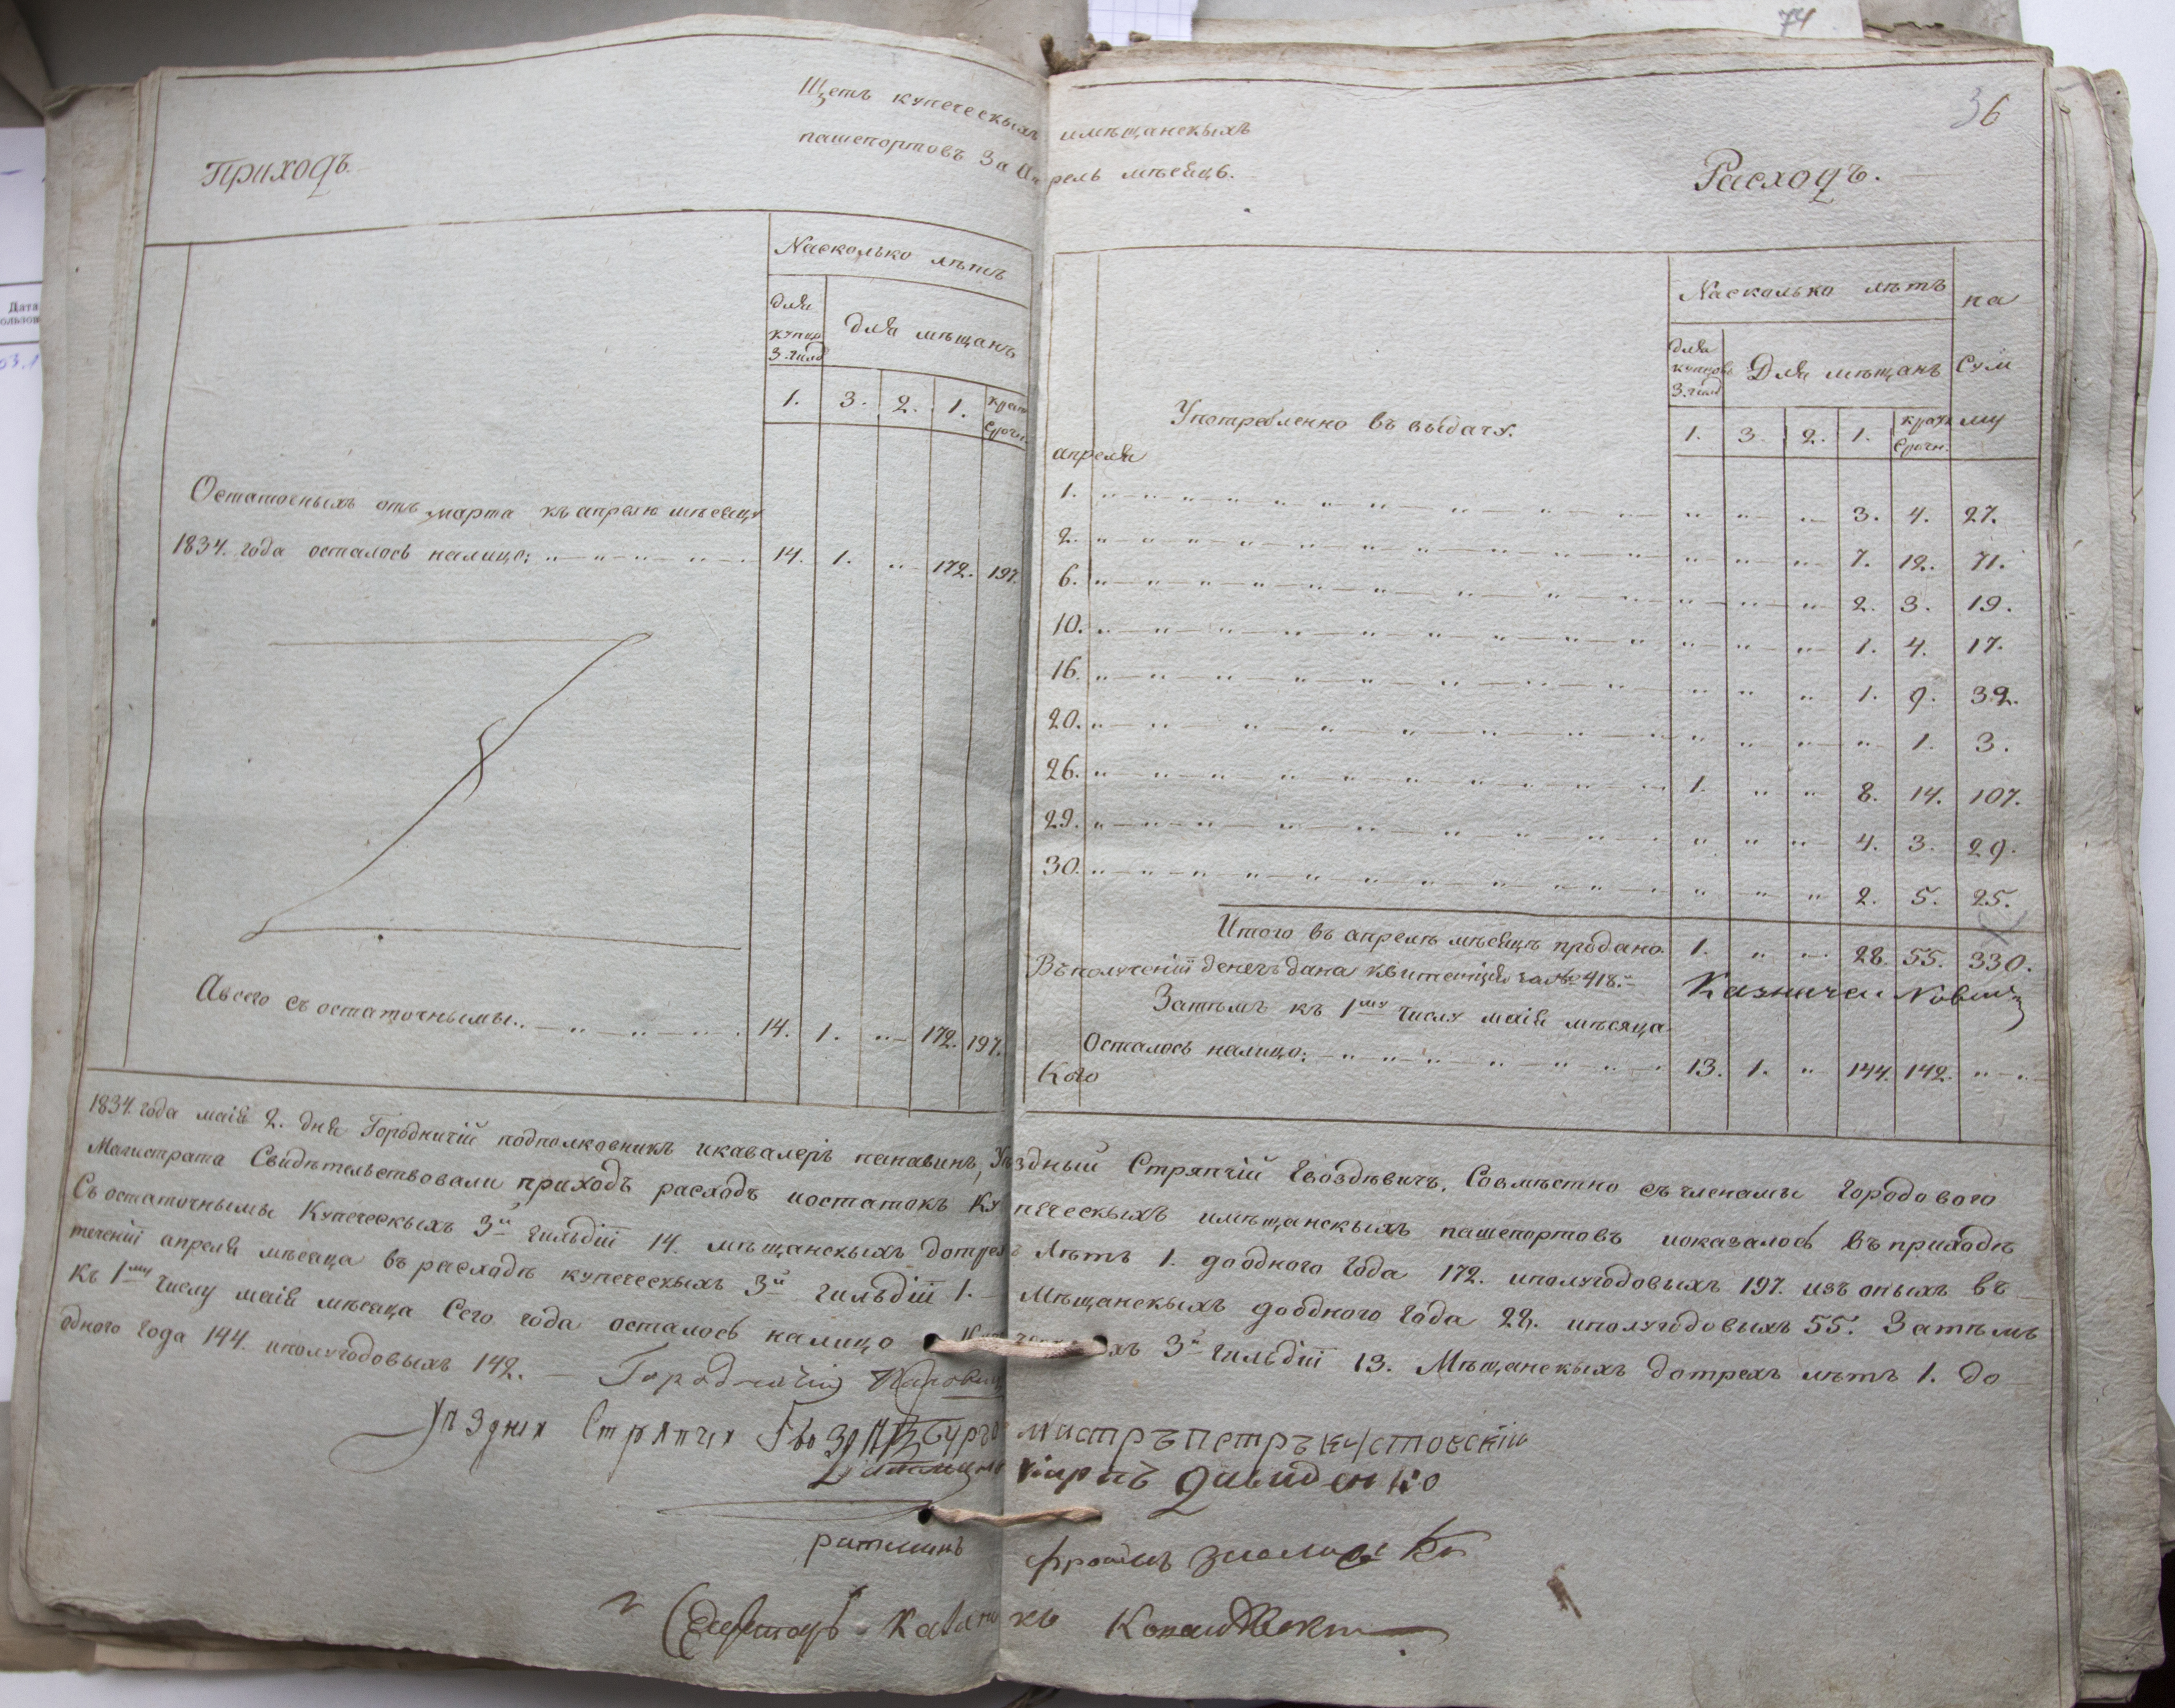 74
36
Щетъ купеческихъ имѣщанскихъ
пашепортовъ За Апрель мѣсяцъ.
Приходъ.
Расходъ.
Насколько лѣтъ
для купцо 3. гилд
Для мѣщанъ
1. 3. 2. 1. крат срочн.
Остаточныхъ отъ марта къ апрелю мѣсяцу
1834. года осталось налицо: 14. 1. „ 172. 197.
Авсего съ остаточнымы.. 14. 1. „ 172. 197.
Насколько лѣтъ
на Сумму
для купцовъ 3. гилд
Для мѣщанъ
1. 3. 2. 1. кратк срочн.
Употребленно въ выдачу.
апреля
1. „ „ „ 3. 4. 27.
2. „ „ „ 7. 12. 71.
6. „ „ „ 2. 3. 19.
10. „ „ „ 1. 4. 17.
16. „ „ „ 1. 9. 32.
20. „ „ „ „ 1. 3.
26. 1. „ „ 8. 14. 107.
29. „ „ „ 4. 3. 29.
30. „ „ „ 2. 5. 25.
Итого въ апрелѣ мѣсяцѣ продано. 1. „ „ 28. 55. 330.
Въ полученіи денегъ дана квитанція за № 418.
Казначеи
Затѣмъ къ 1му числу маія мѣсяца
Осталось налицо: 13. 1. „ 144. 142. „
Кого
1834. года маія 2. дня Городничій подполковникъ икавалеръ Уѣздный Стряпчій Гвоздѣвичъ, Совмѣстно съ членамы Городового
Магистрата Свидѣтельствовали приходъ расходъ иостатокъ Купеческихъ имѣщанскихъ пашепортовъ иоказалось въ приходѣ
Съ остаточнымы Купеческихъ 3й гильдіи 14. мѣщанскихъ дотрехъ лѣтъ 1. доодного года 172. иполугодовыхъ 197. изъ оныхъ въ
теченіи апреля мѣсяца въ расходѣ купеческихъ 3й гильдіи 1. Мѣщанскихъ доодного года 28. иполугодовыхъ 55. Затѣмъ
къ 1му числу маія мѣсяца Сего года осталось налицо Купеческихъ 3й гильдіи 13. Мѣщанскихъ дотрехъ лѣтъ 1. до
одного года 144. иполугодовыхъ 142. Городничій
Уѣздныя Стряпчия Гвоздѣв Бургомистръ петръ
Ратманъ карпъ
ратманъ